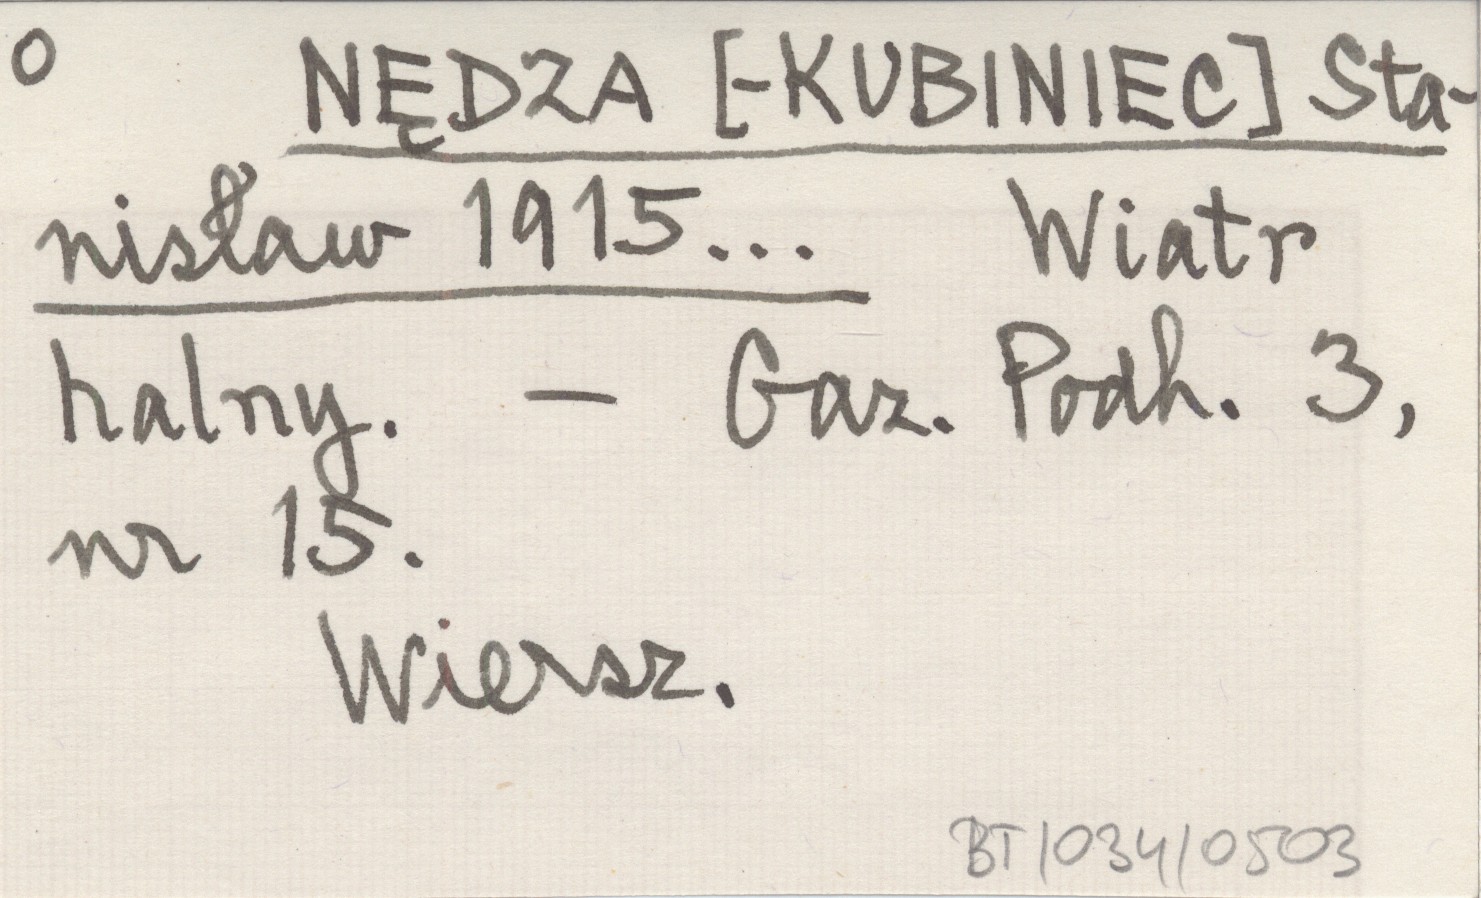 O NĘDZA [-KUBINIEC] Sta-
nisław 1915... Wiatr
halny. — Gaz. Podh. 3,
nr 15.
Wiersz.
BT/034/0503